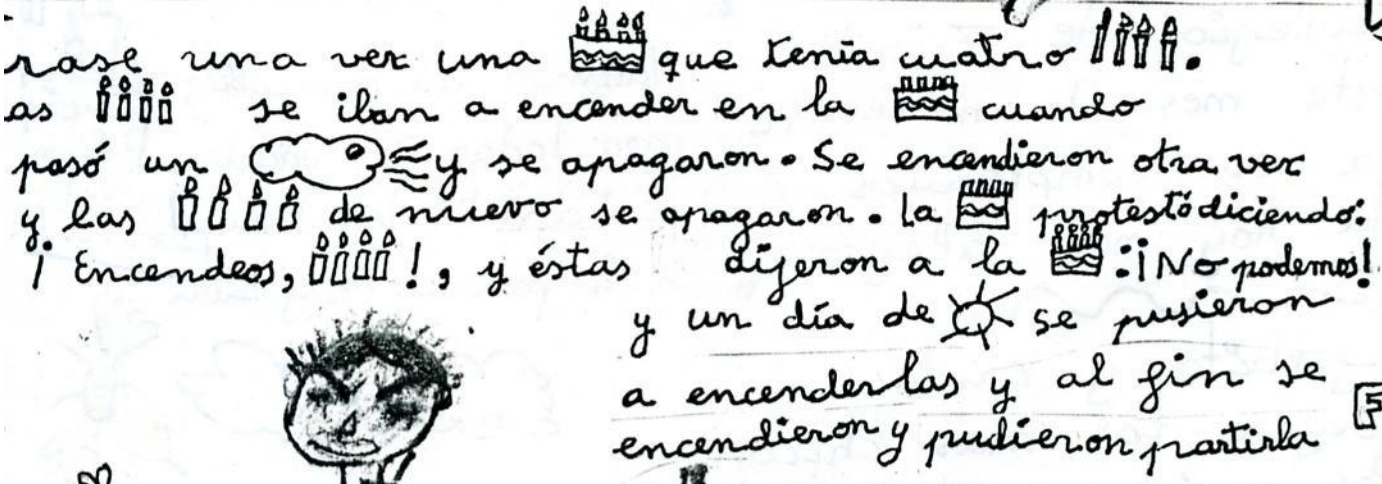 rase una vez una que tenía cuatro .
as se iban a encender en la cuando
pasó un y se apagaron. Se encendieron otra vez
y las de nuevo se apagaron. La protestó diciendo:
¡Encendeos, !, y éstas dijeron a la :¡No podemos!
y un día de se pusieron
a encenderlas y al fin se
encendieron y pudieron partirla